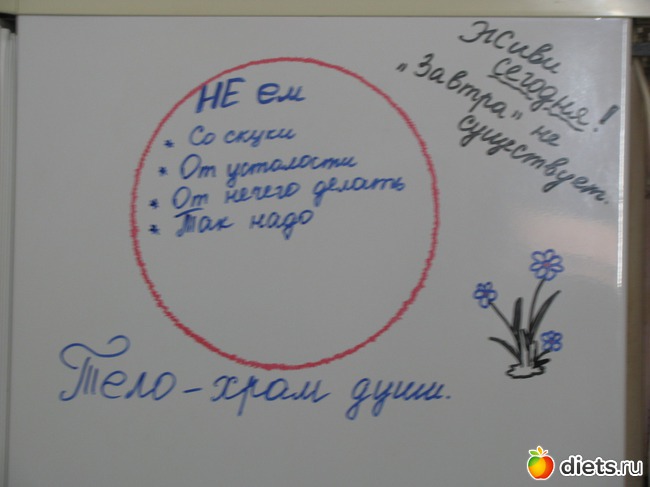 Живи
сегодня!
"Завтра" не
существует.
НЕ ем
* Со скуки
* От усталости
* От нечего делать
* Так надо
Тело - храм души.
diets.ru